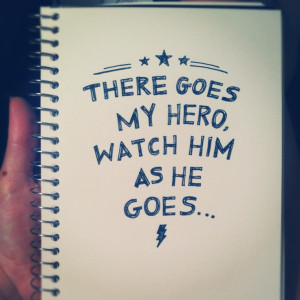 THERE GOES
MY HERO,
WATCH HIM
AS HE
GOES...